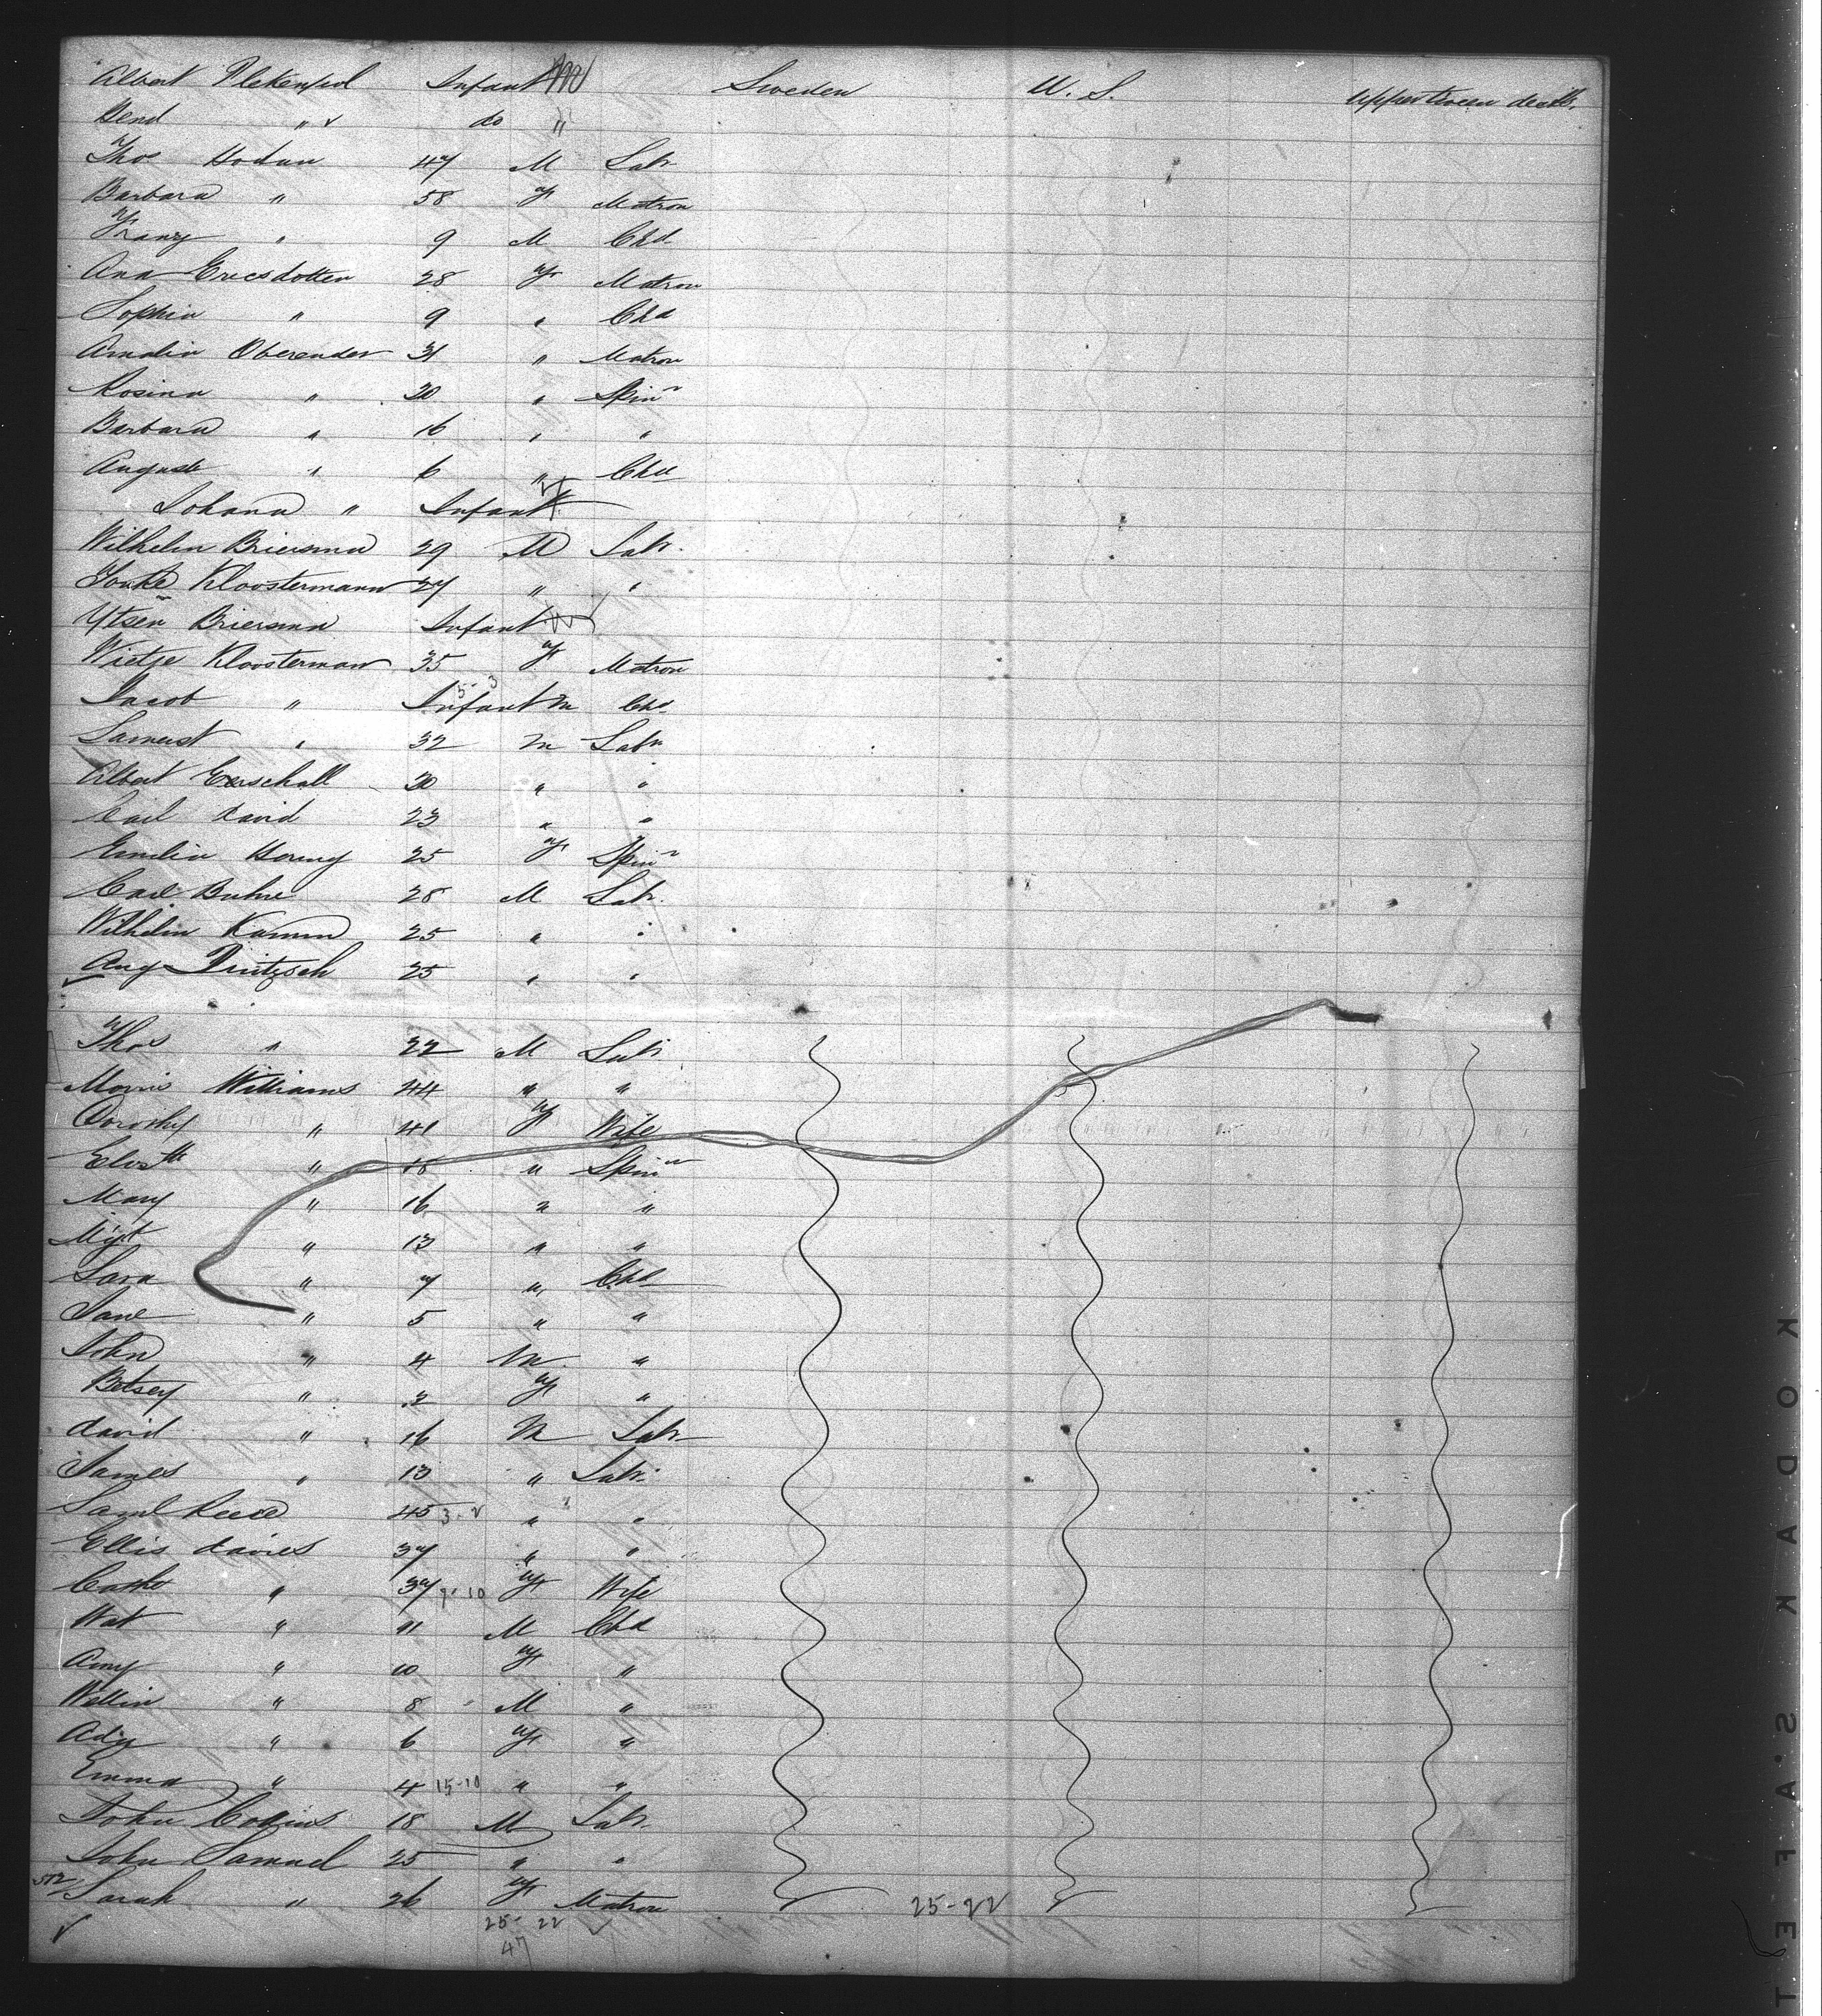 Albert Plekenpol Infant M Sweden U. S. Upper tween decks.
Bend " do "
Thos Hodan 47 M Labr
Barbara " 58 f Matron
Franz " 9 M Chd
Ana Ericsdotter 28 f Matron
Sophia " 9 " Chd
Amalia Oberender 31 " Matron
Rosina " 20 " Spinr
Barbara " 16 " "
August " 6 " Chd
Johana " Infant
Wilhelm Briersma 29 M Labr.
Kloostermann 27 " "
Ytsen Briersma Infant
Wietze Kloosterman 35 f Matron
5-3
Jacob " Infant m Chd
" 32 m Labr
Albert 20 " "
Carl David 23 " "
Emelia Horing 25 f Spinr
Carl Buhre 28 M Labr.
Wilhelm Kamm 25 " "
Aug 25 " "
Thos " 22 M Labr.
Morris Williams 44 " "
Dorothy " 41 f Wife
Elizth " 18 " Spinr
Mary " 16 " "
Mgt " 13 " "
Sara " 7 " Chd
Jane " 5 " "
John " 4 M "
Betsey " 2 f "
David " 16 M Labr
James " 13 " Labr.
Saml Reece 45 3-2 " "
Ellis Davies 37 " "
Cathe " 37 9-10 f Wife
Wat " 11 M Chd
Amy " 10 f "
Willin " 8 M "
Ady " 6 f "
Emma " 4 15-10 " "
John Collins 18 M Labr.
John Samuel 25 " "
572 Sarah " 26 f Matron 25-22
25-22
47
KODAK SAFETY